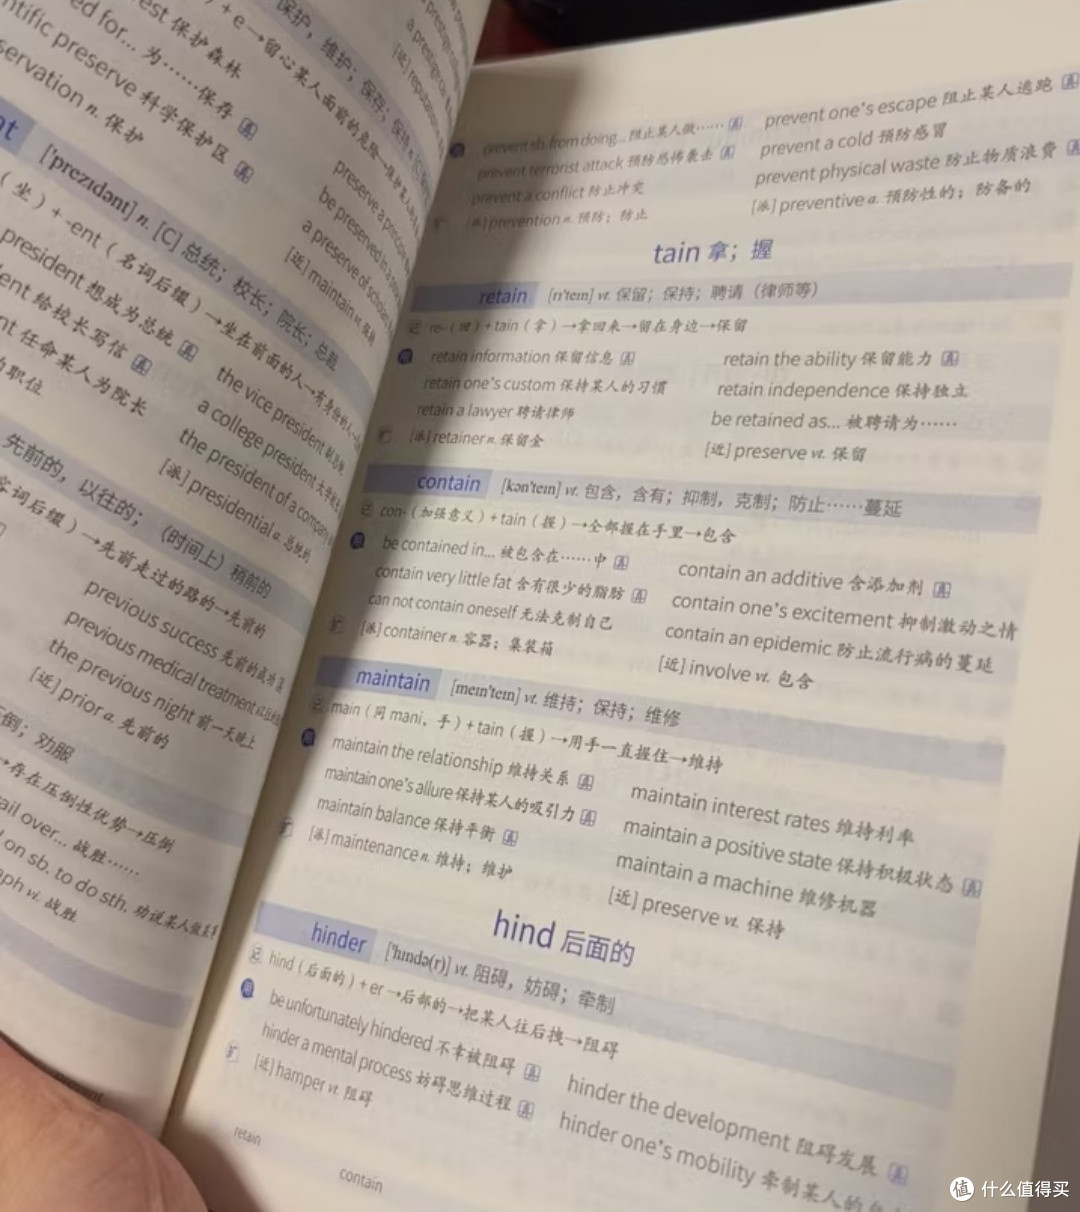 est 保护森林
ed for... 为……保存
ntific preserve 科学保护区
servation n. 保护
保护，维护；保存；保持
+ e→留心某人面前的危险→保护某人
preserve a precious
be preserved in a
a preserve of scholar
[近] maintain vt.
a prestige
[近] reputation
nt ['prezɪdənt] n. [C] 总统；校长；院长；总裁
（坐）+ -ent（名词后缀）→坐在前面的人→有身份的人
president 想成为总统
ent 给校长写信
nt 任命某人为院长
的职位
the vice president 副总统
a college president 大学校长
the president of a company
[派] presidential a. 总统的
先前的，以往的；（时间上）稍前的
容词后缀）→先前走过的路的→先前的
previous success 先前的成功
previous medical treatment
the previous night 前一天晚上
[近] prior a. 先前的
倒；劝服
→存在压倒性优势→压倒
ail over... 战胜……
l on sb. to do sth. 劝说某人做某事
ph vi. 战胜
prevent sb. from doing... 阻止某人做……
prevent one's escape 阻止某人逃跑
prevent terrorist attack 预防恐怖袭击
prevent a cold 预防感冒
prevent a conflict 防止冲突
prevent physical waste 防止物质浪费
[派] prevention n. 预防；防止
[派] preventive a. 预防性的；防备的
tain 拿；握
retain [rɪ'teɪn] vt. 保留；保持；聘请（律师等）
记 re-（回）+ tain（拿）→拿回来→留在身边→保留
用 retain information 保留信息
retain the ability 保留能力
retain one's custom 保持某人的习惯
retain independence 保持独立
retain a lawyer 聘请律师
be retained as... 被聘请为……
扩 [派] retainer n. 保留金
[近] preserve vt. 保留
contain [kən'teɪn] vt. 包含，含有；抑制，克制；防止……蔓延
记 con-（加强意义）+ tain（握）→全部握在手里→包含
用 be contained in... 被包含在……中
contain an additive 含添加剂
contain very little fat 含有很少的脂肪
contain one's excitement 抑制激动之情
can not contain oneself 无法克制自己
contain an epidemic 防止流行病的蔓延
扩 [派] container n. 容器；集装箱
[近] involve vt. 包含
maintain [meɪn'teɪn] vt. 维持；保持；维修
记 main（同 mani，手）+ tain（握）→用手一直握住→维持
用 maintain the relationship 维持关系
maintain interest rates 维持利率
maintain one's allure 保持某人的吸引力
maintain a positive state 保持积极状态
maintain balance 保持平衡
maintain a machine 维修机器
扩 [派] maintenance n. 维持；维护
[近] preserve vt. 保持
hind 后面的
hinder ['hɪndə(r)] vt. 阻碍，妨碍；牵制
记 hind（后面的）+ er→后部的→把某人往后拽→阻碍
用 be unfortunately hindered 不幸被阻碍
hinder the development 阻碍发展
hinder a mental process 妨碍思维过程
hinder one's mobility 牵制某人的
扩 [近] hamper vt. 阻碍
retain
contain
值 什么值得买